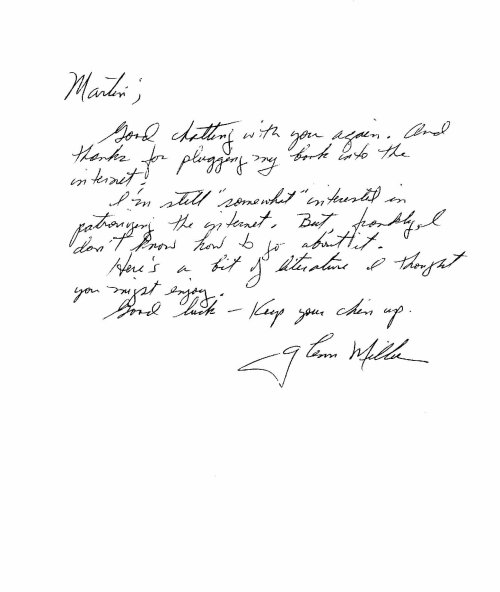 Martin;
Good chatting with you again. And
thanks for plugging my book into the
internet.
I'm still "somewhat" interested in
patronizing the internet. But, frankly, I
don't know how to go about it.
Here's a bit of literature I thought
you might enjoy.
Good luck — Keep your chin up.
Glenn Miller